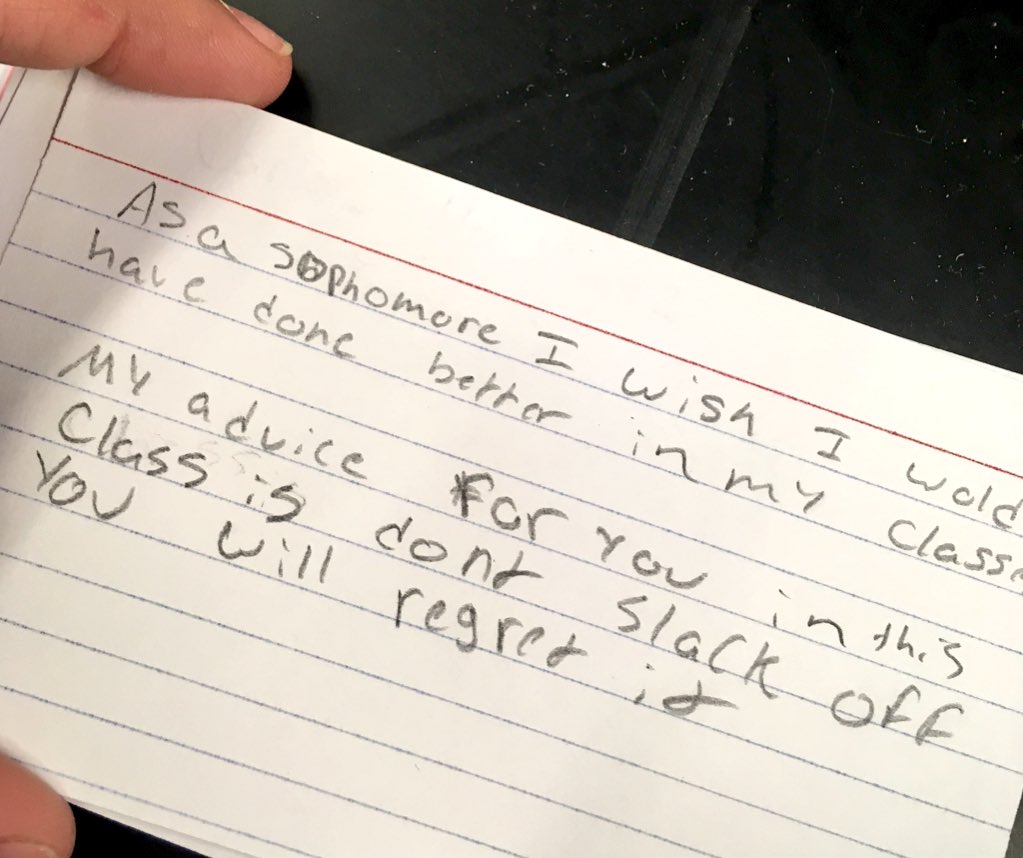 As a sophomore I wish I wold
have done better in my Classe
My advice For you in this
Class is dont Slack off
You will regret it